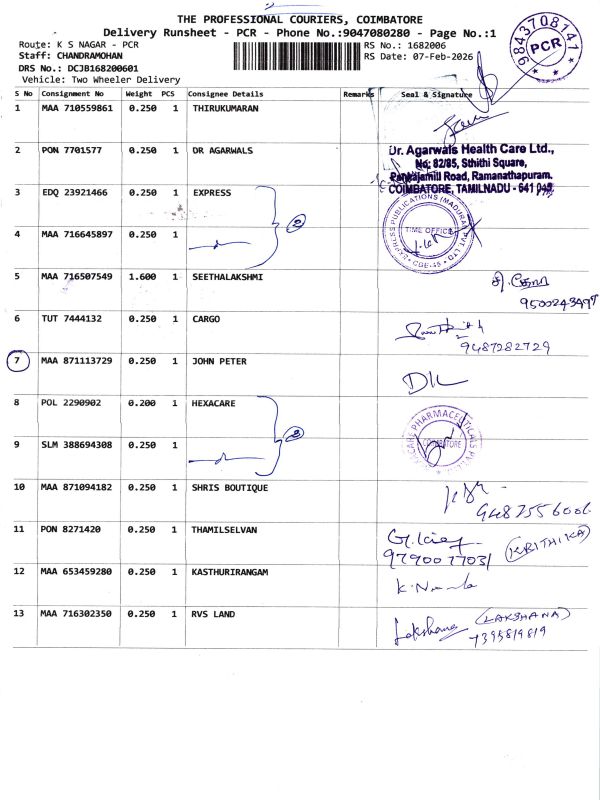 THE PROFESSIONAL COURIERS, COIMBATORE
Delivery Runsheet - PCR - Phone No.:9047080280 - Page No.:1
Route: K S NAGAR - PCR
RS No.: 1682006
Staff: CHANDRAMOHAN
RS Date: 07-Feb-2026
DRS No.: DCJB168200601
Vehicle: Two Wheeler Delivery
9843708141
PCR
S No Consignment No Weight PCS Consignee Details Remarks Seal & Signature
1 MAA 710559861 0.250 1 THIRUKUMARAN
2 PON 7701577 0.250 1 DR AGARWALS
Dr. Agarwals Health Care Ltd.,
No: 82/85, Sthithi Square,
Pankajamill Road, Ramanathapuram.
COIMBATORE, TAMILNADU - 641 045.
3 EDQ 23921466 0.250 1 EXPRESS
EXPRESS PUBLICATIONS (MADURAI) PVT. LTD.
TIME OFFICE
CBE-45
4 MAA 716645897 0.250 1
5 MAA 716507549 1.600 1 SEETHALAKSHMI
9500243497
6 TUT 7444132 0.250 1 CARGO
9487282729
7 MAA 871113729 0.250 1 JOHN PETER
8 POL 2290902 0.200 1 HEXACARE
HEXACARE PHARMACEUTICALS
COIMBATORE
9 SLM 388694308 0.250 1
10 MAA 871094182 0.250 1 SHRIS BOUTIQUE
9487556006
11 PON 8271420 0.250 1 THAMILSELVAN
(KRITHIKA)
9790077031
12 MAA 653459280 0.250 1 KASTHURIRANGAM
13 MAA 716302350 0.250 1 RVS LAND
Lakshana (LAKSHANA)
7395819819